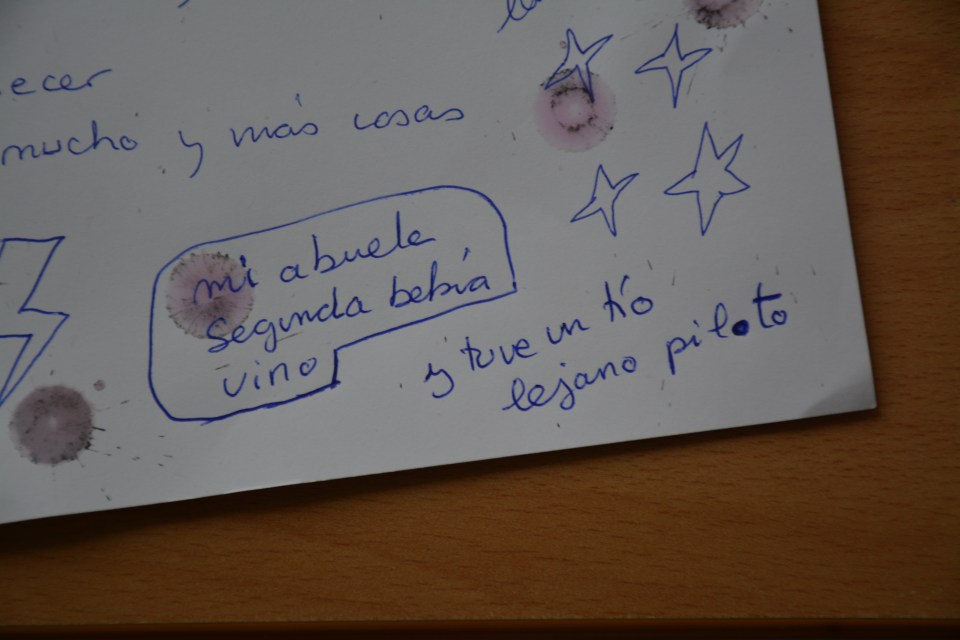 ecer
mucho y más cosas
mi abuela
segunda bebía
vino
y tuve un tío
lejano piloto